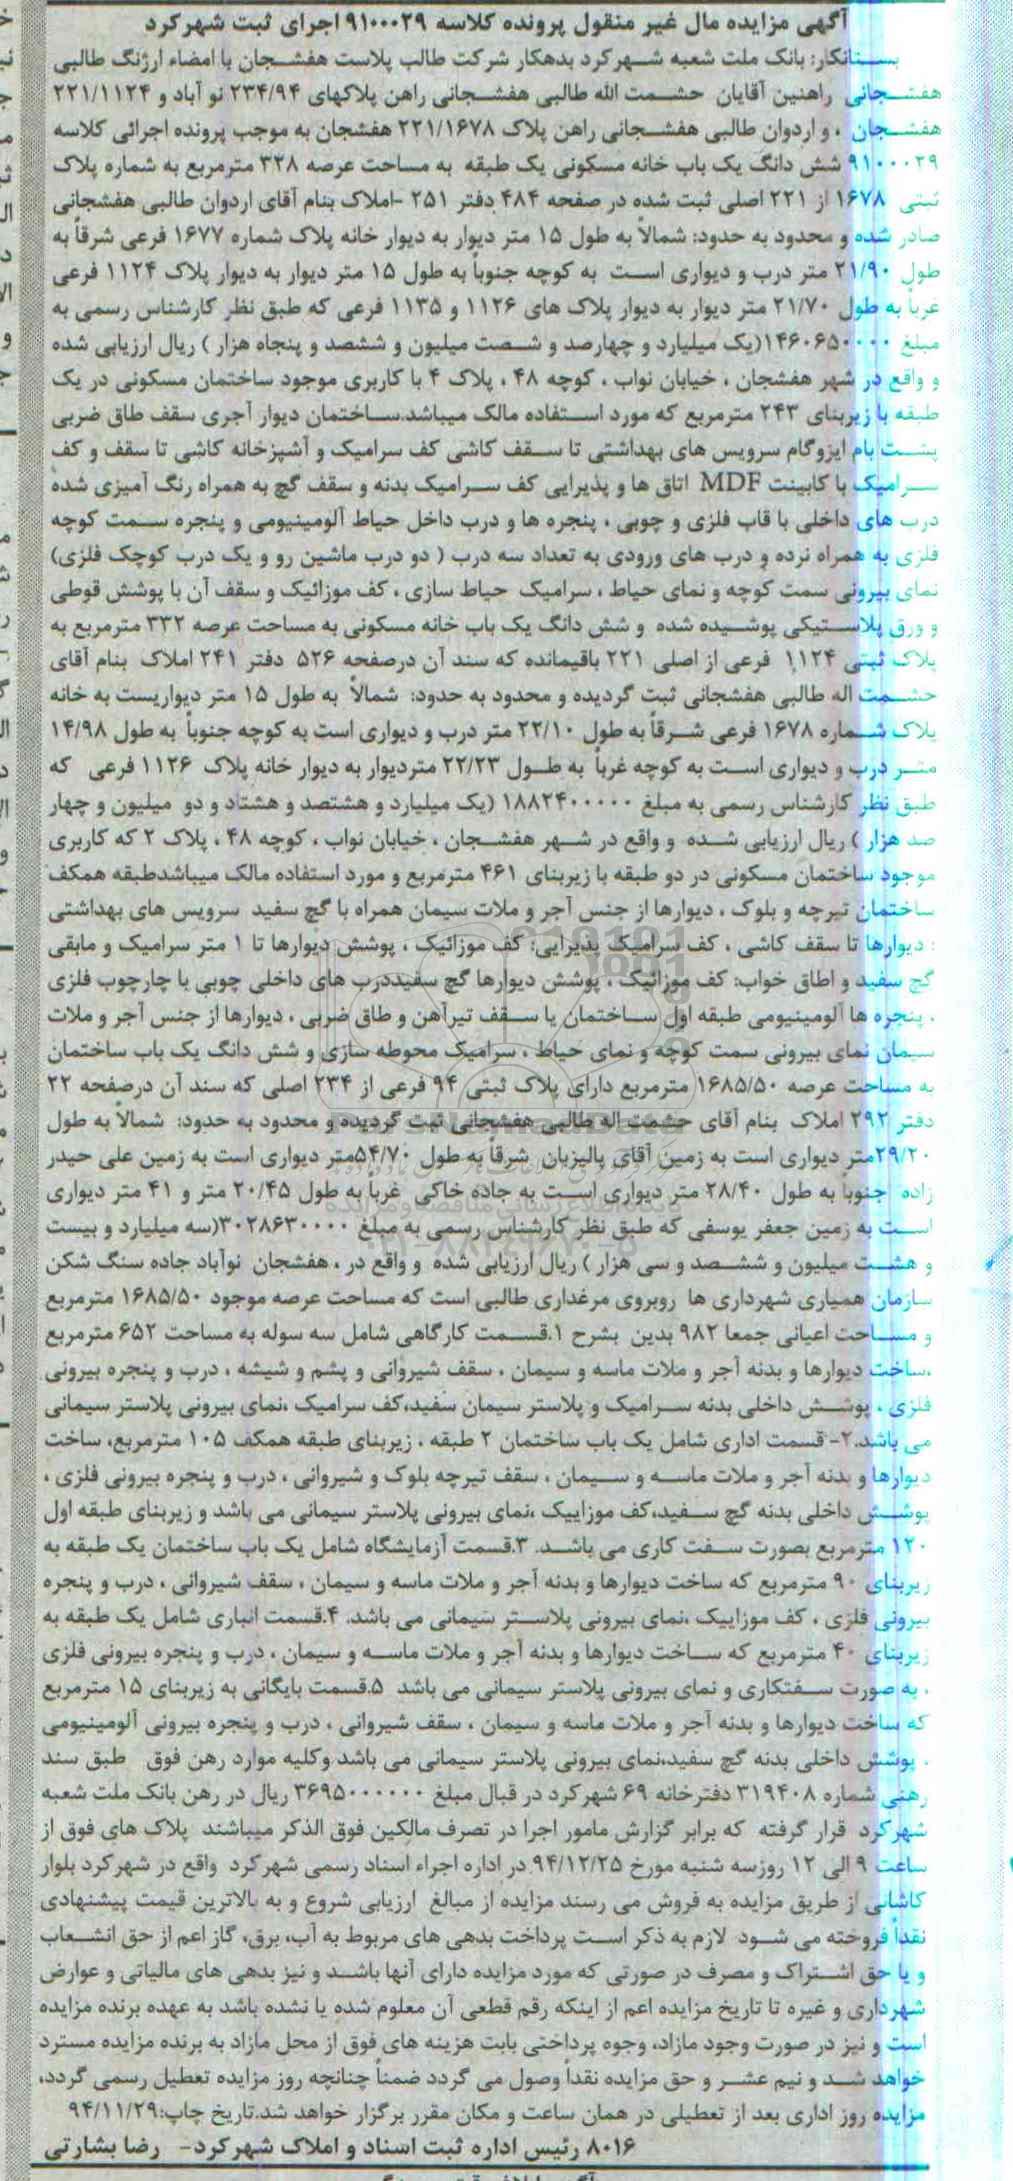 آگهی مزایده مال غیر منقول پرونده کلاسه ۹۱۰۰۰۲۹ اجرای ثبت شهرکرد
بستانکار: بانک ملت شعبه شهرکرد بدهکار شرکت طالب پلاست هفشجان با امضاء ارژنگ طالبی
هفشجانی راهنین آقایان حشمت الله طالبی هفشجانی راهن پلاکهای ۲۳۴/۹۴ نو آباد و ۲۲۱/۱۱۲۴
هفشجان ، و اردوان طالبی هفشجانی راهن پلاک ۲۲۱/۱۶۷۸ هفشجان به موجب پرونده اجرائی کلاسه
۹۱۰۰۰۲۹ شش دانگ یک باب خانه مسکونی یک طبقه به مساحت عرصه ۳۲۸ مترمربع به شماره پلاک
ثبتی ۱۶۷۸ از ۲۲۱ اصلی ثبت شده در صفحه ۴۸۴ دفتر ۲۵۱ -املاک بنام آقای اردوان طالبی هفشجانی
صادر شده و محدود به حدود: شمالاً به طول ۱۵ متر دیوار به دیوار خانه پلاک شماره ۱۶۷۷ فرعی شرقاً به
طول ۲۱/۹۰ متر درب و دیواری است به کوچه جنوباً به طول ۱۵ متر دیوار به دیوار پلاک ۱۱۲۴ فرعی
غرباً به طول ۲۱/۷۰ متر دیوار به دیوار پلاک های ۱۱۲۶ و ۱۱۳۵ فرعی که طبق نظر کارشناس رسمی به
مبلغ ۱۴۶۰۶۵۰۰۰۰(یک میلیارد و چهارصد و شصت میلیون و ششصد و پنجاه هزار ) ریال ارزیابی شده
و واقع در شهر هفشجان ، خیابان نواب ، کوچه ۴۸ ، پلاک ۴ با کاربری موجود ساختمان مسکونی در یک
طبقه با زیربنای ۲۴۳ مترمربع که مورد استفاده مالک میباشد.ساختمان دیوار آجری سقف طاق ضربی
پشت بام ایزوگام سرویس های بهداشتی تا سقف کاشی کف سرامیک و آشپزخانه کاشی تا سقف و کف
سرامیک با کابینت MDF اتاق ها و پذیرایی کف سرامیک بدنه و سقف گچ به همراه رنگ آمیزی شده
درب های داخلی با قاب فلزی و چوبی ، پنجره ها و درب داخل حیاط آلومینیومی و پنجره سمت کوچه
فلزی به همراه نرده و درب های ورودی به تعداد سه درب ( دو درب ماشین رو و یک درب کوچک فلزی)
نمای بیرونی سمت کوچه و نمای حیاط ، سرامیک حیاط سازی ، کف موزائیک و سقف آن با پوشش قوطی
و ورق پلاستیکی پوشیده شده و شش دانگ یک باب خانه مسکونی به مساحت عرصه ۳۳۲ مترمربع به
پلاک ثبتی ۱۱۲۴ فرعی از اصلی ۲۲۱ باقیمانده که سند آن درصفحه ۵۲۶ دفتر ۲۴۱ املاک بنام آقای
حشمت اله طالبی هفشجانی ثبت گردیده و محدود به حدود: شمالاً به طول ۱۵ متر دیواریست به خانه
پلاک شماره ۱۶۷۸ فرعی شرقاً به طول ۲۲/۱۰ متر درب و دیواری است به کوچه جنوباً به طول ۱۴/۹۸
متر درب و دیواری است به کوچه غرباً به طول ۲۲/۲۳ متردیوار به دیوار خانه پلاک ۱۱۲۶ فرعی که
طبق نظر کارشناس رسمی به مبلغ ۱۸۸۲۴۰۰۰۰۰ (یک میلیارد و هشتصد و هشتاد و دو میلیون و چهار
صد هزار ) ریال ارزیابی شده و واقع در شهر هفشجان ، خیابان نواب ، کوچه ۴۸ ، پلاک ۲ که کاربری
موجود ساختمان مسکونی در دو طبقه با زیربنای ۴۶۱ مترمربع و مورد استفاده مالک میباشدطبقه همکف
ساختمان تیرچه و بلوک ، دیوارها از جنس آجر و ملات سیمان همراه با گچ سفید سرویس های بهداشتی
: دیوارها تا سقف کاشی ، کف سرامیک پذیرایی: کف موزائیک ، پوشش دیوارها تا ۱ متر سرامیک و مابقی
گچ سفید و اطاق خواب: کف موزائیک ، پوشش دیوارها گچ سفیددرب های داخلی چوبی با چارچوب فلزی
، پنجره ها آلومینیومی طبقه اول ساختمان یا سقف تیرآهن و طاق ضربی ، دیوارها از جنس آجر و ملات
سیمان نمای بیرونی سمت کوچه و نمای حیاط ، سرامیک محوطه سازی و شش دانگ یک باب ساختمان
به مساحت عرصه ۱۶۸۵/۵۰ مترمربع دارای پلاک ثبتی ۹۴ فرعی از ۲۳۴ اصلی که سند آن درصفحه ۲۲
دفتر ۲۹۲ املاک بنام آقای حشمت اله طالبی هفشجانی ثبت گردیده و محدود به حدود: شمالاً به طول
۲۹/۲۰متر دیواری است به زمین آقای پالیزبان شرقاً به طول ۵۴/۷۰متر دیواری است به زمین علی حیدر
زاده جنوبا به طول ۲۸/۴۰ متر دیواری است به جاده خاکی غرباً به طول ۲۰/۴۵ متر و ۴۱ متر دیواری
است به زمین جعفر یوسفی که طبق نظر کارشناس رسمی به مبلغ ۳۰۲۸۶۳۰۰۰۰(سه میلیارد و بیست
و هشت میلیون و ششصد و سی هزار ) ریال ارزیابی شده و واقع در ، هفشجان نوآباد جاده سنگ شکن
سازمان همیاری شهرداری ها روبروی مرغداری طالبی است که مساحت عرصه موجود ۱۶۸۵/۵۰ مترمربع
و مساحت اعیانی جمعا ۹۸۲ بدین بشرح ۱.قسمت کارگاهی شامل سه سوله به مساحت ۶۵۲ مترمربع
،ساخت دیوارها و بدنه آجر و ملات ماسه و سیمان ، سقف شیروانی و پشم و شیشه ، درب و پنجره بیرونی
فلزی ، پوشش داخلی بدنه سرامیک و پلاستر سیمان سفید،کف سرامیک ،نمای بیرونی پلاستر سیمانی
می باشد.۲- قسمت اداری شامل یک باب ساختمان ۲ طبقه ، زیربنای طبقه همکف ۱۰۵ مترمربع، ساخت
دیوارها و بدنه آجر و ملات ماسه و سیمان ، سقف تیرچه بلوک و شیروانی ، درب و پنجره بیرونی فلزی ،
پوشش داخلی بدنه گچ سفید،کف موزاییک ،نمای بیرونی پلاستر سیمانی می باشد و زیربنای طبقه اول
۱۲۰ مترمربع بصورت سفت کاری می باشد. ۳.قسمت آزمایشگاه شامل یک باب ساختمان یک طبقه به
زیربنای ۹۰ مترمربع که ساخت دیوارها و بدنه آجر و ملات ماسه و سیمان ، سقف شیروانی ، درب و پنجره
بیرونی فلزی ، کف موزاییک ،نمای بیرونی پلاستر سیمانی می باشد. ۴.قسمت انباری شامل یک طبقه به
زیربنای ۴۰ مترمربع که ساخت دیوارها و بدنه آجر و ملات ماسه و سیمان ، درب و پنجره بیرونی فلزی
، به صورت سفتکاری و نمای بیرونی پلاستر سیمانی می باشد ۵.قسمت بایگانی به زیربنای ۱۵ مترمربع
که ساخت دیوارها و بدنه آجر و ملات ماسه و سیمان ، سقف شیروانی ، درب و پنجره بیرونی آلومینیومی
، پوشش داخلی بدنه گچ سفید،نمای بیرونی پلاستر سیمانی می باشد وکلیه موارد رهن فوق طبق سند
رهنی شماره ۳۱۹۴۰۸ دفترخانه ۶۹ شهرکرد در قبال مبلغ ۳۶۹۵۰۰۰۰۰۰ ریال در رهن بانک ملت شعبه
شهرکرد قرار گرفته که برابر گزارش مامور اجرا در تصرف مالکین فوق الذکر میباشند پلاک های فوق از
ساعت ۹ الی ۱۲ روزسه شنبه مورخ ۹۴/۱۲/۲۵ در اداره اجراء اسناد رسمی شهرکرد واقع در شهرکرد بلوار
کاشانی از طریق مزایده به فروش می رسند مزایده از مبالغ ارزیابی شروع و به بالاترین قیمت پیشنهادی
نقداً فروخته می شود لازم به ذکر است پرداخت بدهی های مربوط به آب، برق، گاز اعم از حق انشعاب
و یا حق اشتراک و مصرف در صورتی که مورد مزایده دارای آنها باشد و نیز بدهی های مالیاتی و عوارض
شهرداری و غیره تا تاریخ مزایده اعم از اینکه رقم قطعی آن معلوم شده یا نشده باشد به عهده برنده مزایده
است و نیز در صورت وجود مازاد، وجوه پرداختی بابت هزینه های فوق از محل مازاد به برنده مزایده مسترد
خواهد شد و نیم عشر و حق مزایده نقداً وصول می گردد ضمناً چنانچه روز مزایده تعطیل رسمی گردد،
مزایده روز اداری بعد از تعطیلی در همان ساعت و مکان مقرر برگزار خواهد شد.تاریخ چاپ:۹۴/۱۱/۲۹
۸۰۱۶ رئیس اداره ثبت اسناد و املاک شهرکرد- رضا بشارتی